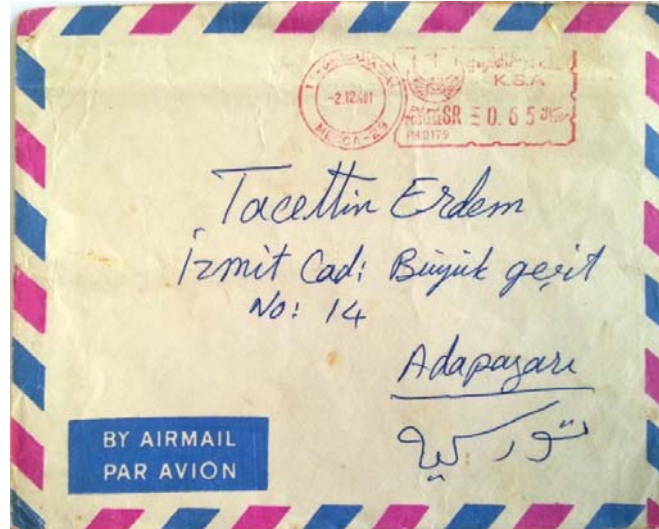 -2.12.401
MECCA-29
K.S.A
POSTAGE SR 0.65
PH0179
Tacettin Erdem
İzmit Cad: Büyük geçit
No: 14
Adapazarı
توركيه
BY AIRMAIL
PAR AVION